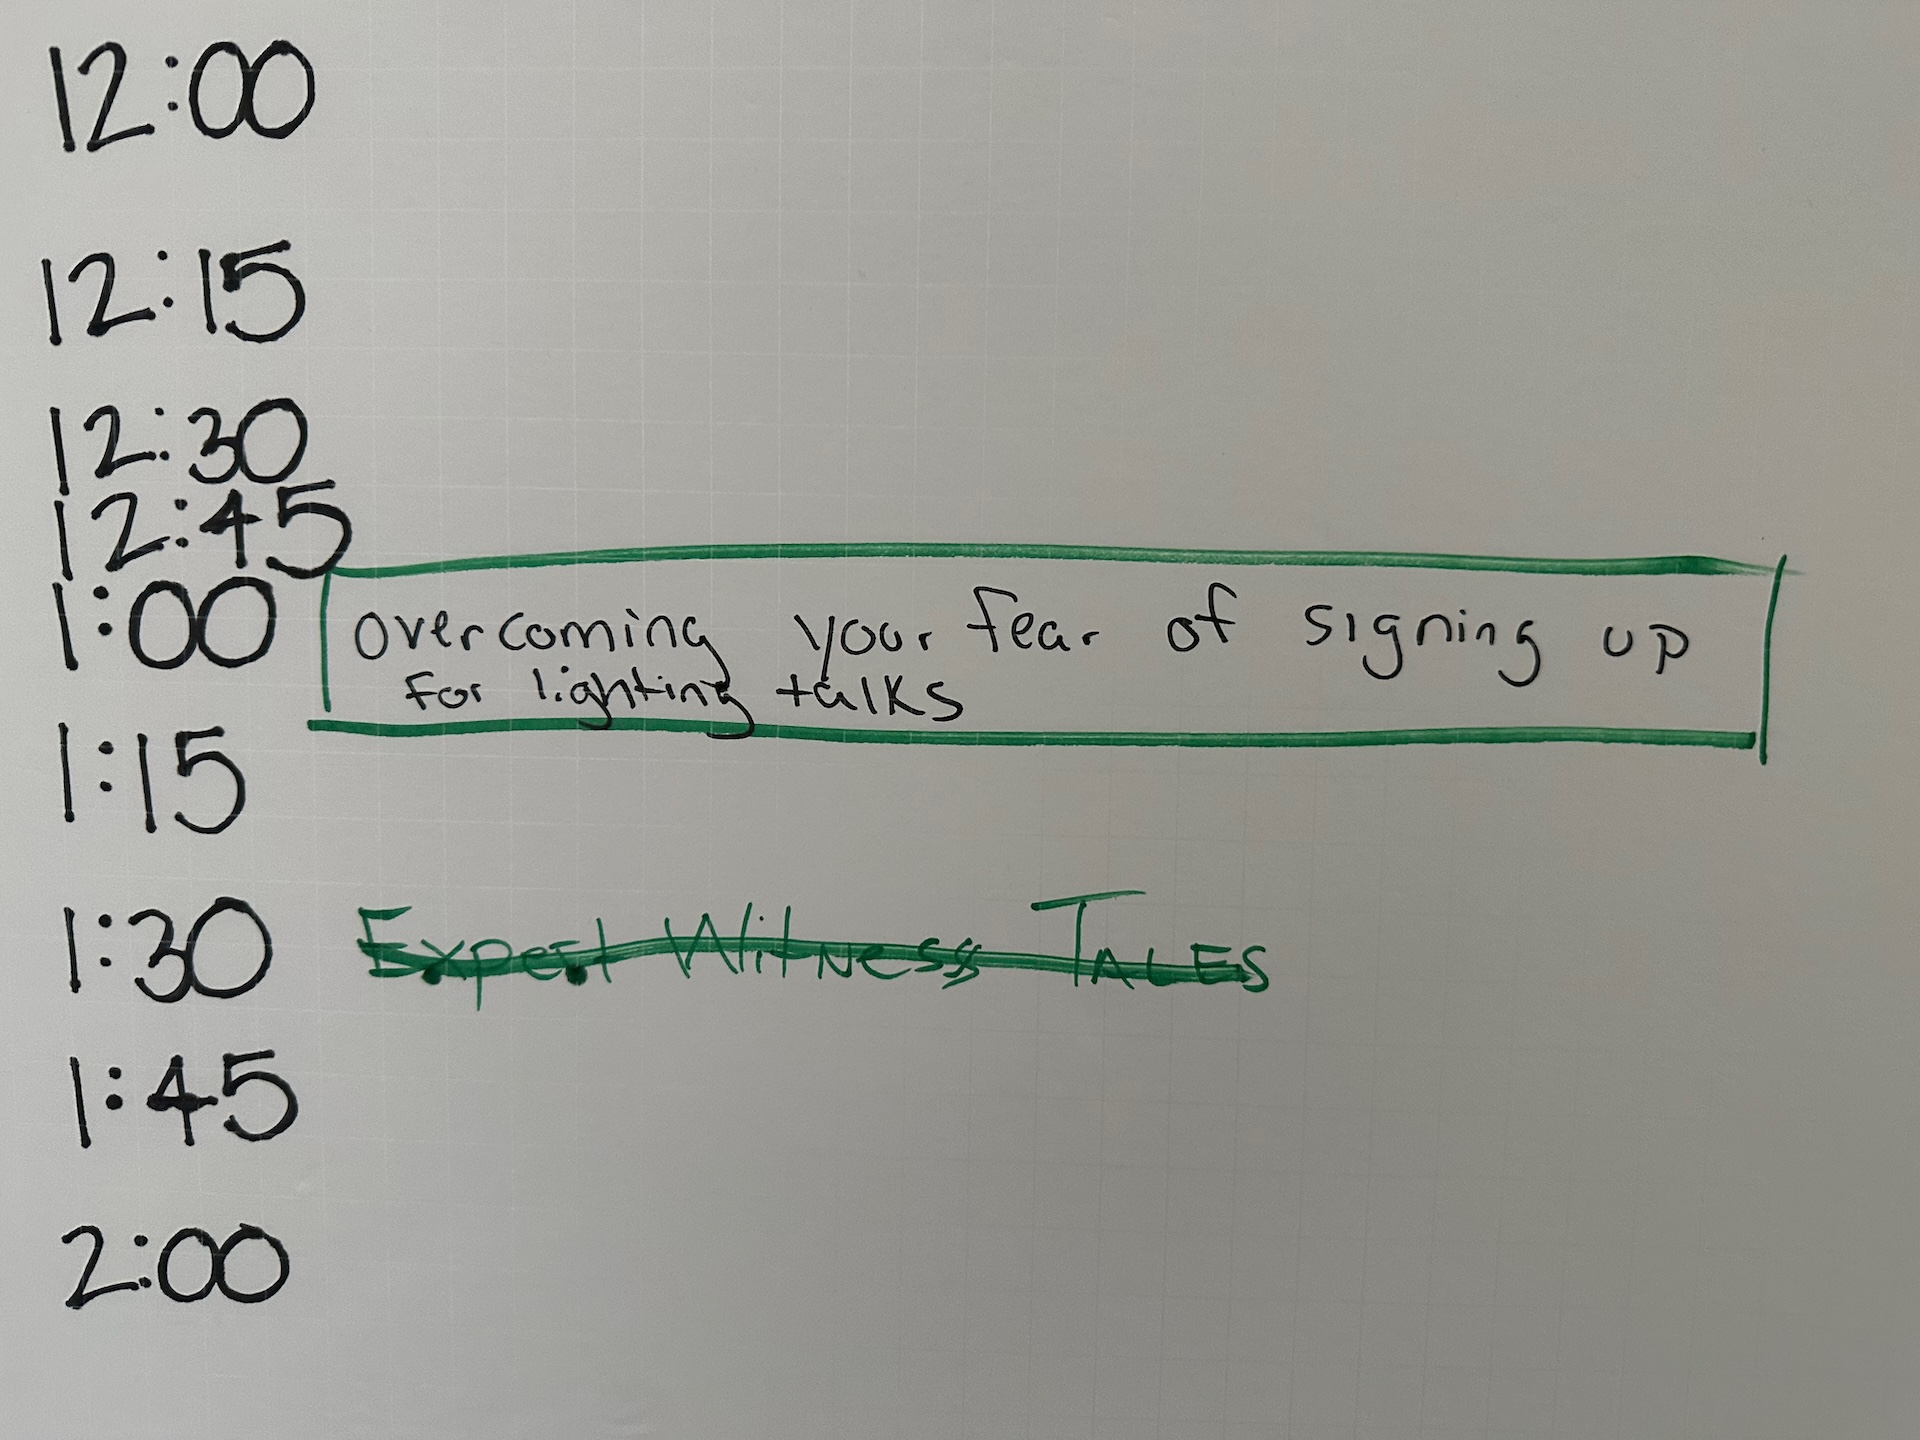 12:00
12:15
12:30
12:45
1:00 overcoming your fear of signing up
for lighting talks
1:15
1:30 Expert Witness TALES
1:45
2:00